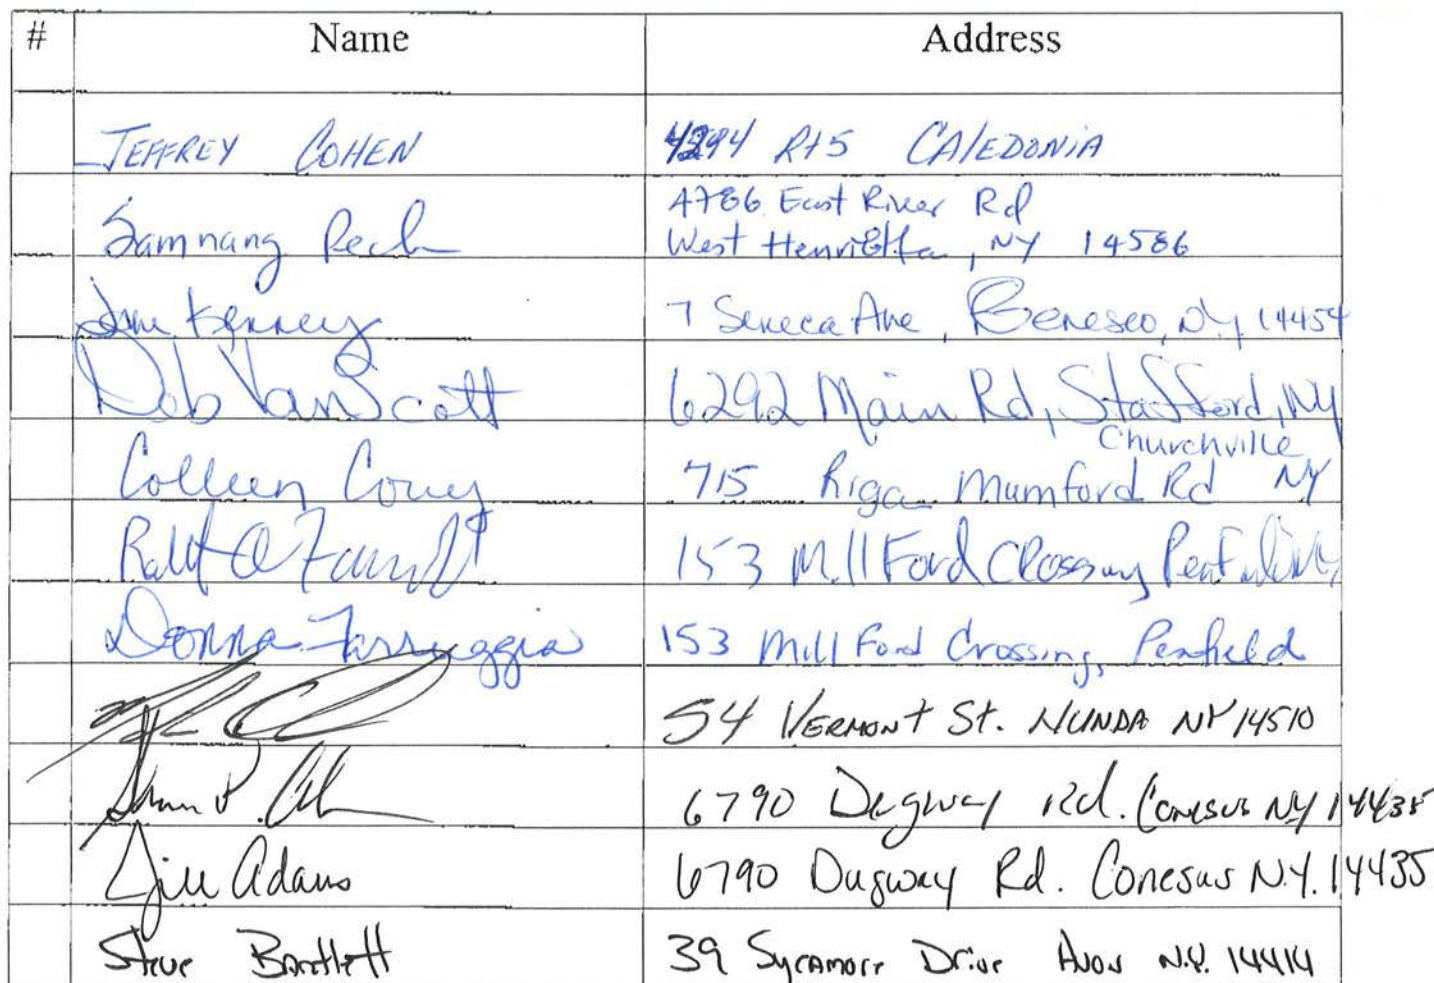 # Name Address
JEFFREY COHEN 4294 Rt 5 CALEDONIA
Samnang Pech 4786 East River Rd
West Henrietta, NY 14586
Kenney 7 Seneca Ave, Geneseo, NY 14454
Deb VanScott 6292 Main Rd, Stafford, NY
Churchville
Colleen 715 Riga Mumford Rd NY
153 Mill Ford Crossing
Donna Farruggia 153 Mill Ford Crossing, Penfield
54 VERMONT St. NUNDA NY 14510
6790 Dugway Rd. Conesus NY 14435
Jill Adams 6790 Dugway Rd. Conesus N.Y. 14435
Steve Bartlett 39 Sycamore Drive Avon N.Y. 14414